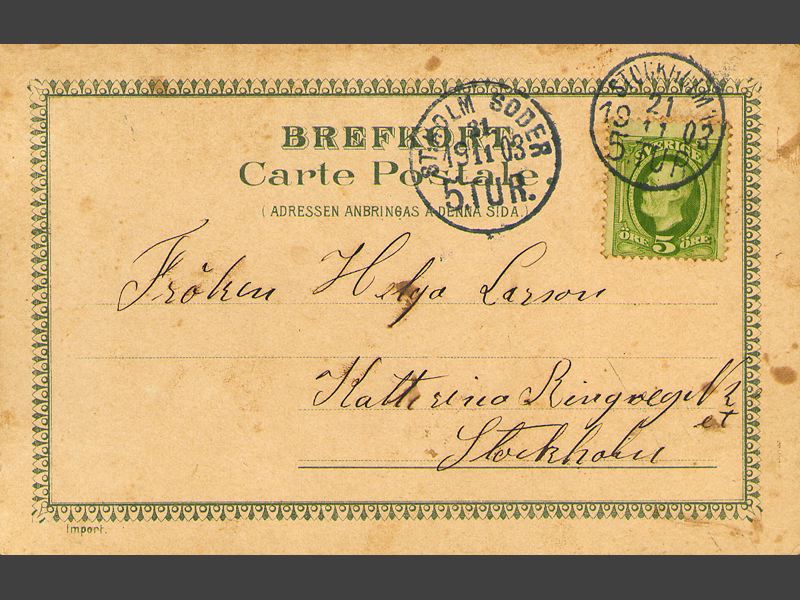 BREFKORT.
Carte Postale.
(ADRESSEN ANBRINGAS Å DENNA SIDA.)
ST.HOLM SÖDER
21
19 11 03
5.TUR.
STOCKHOLM 1
21
19 11 03
5 TUR
SVERIGE
ÖRE 5 ÖRE
Fröken Helga Larson
Kattrina Ringvegen
Stockholm
Import.